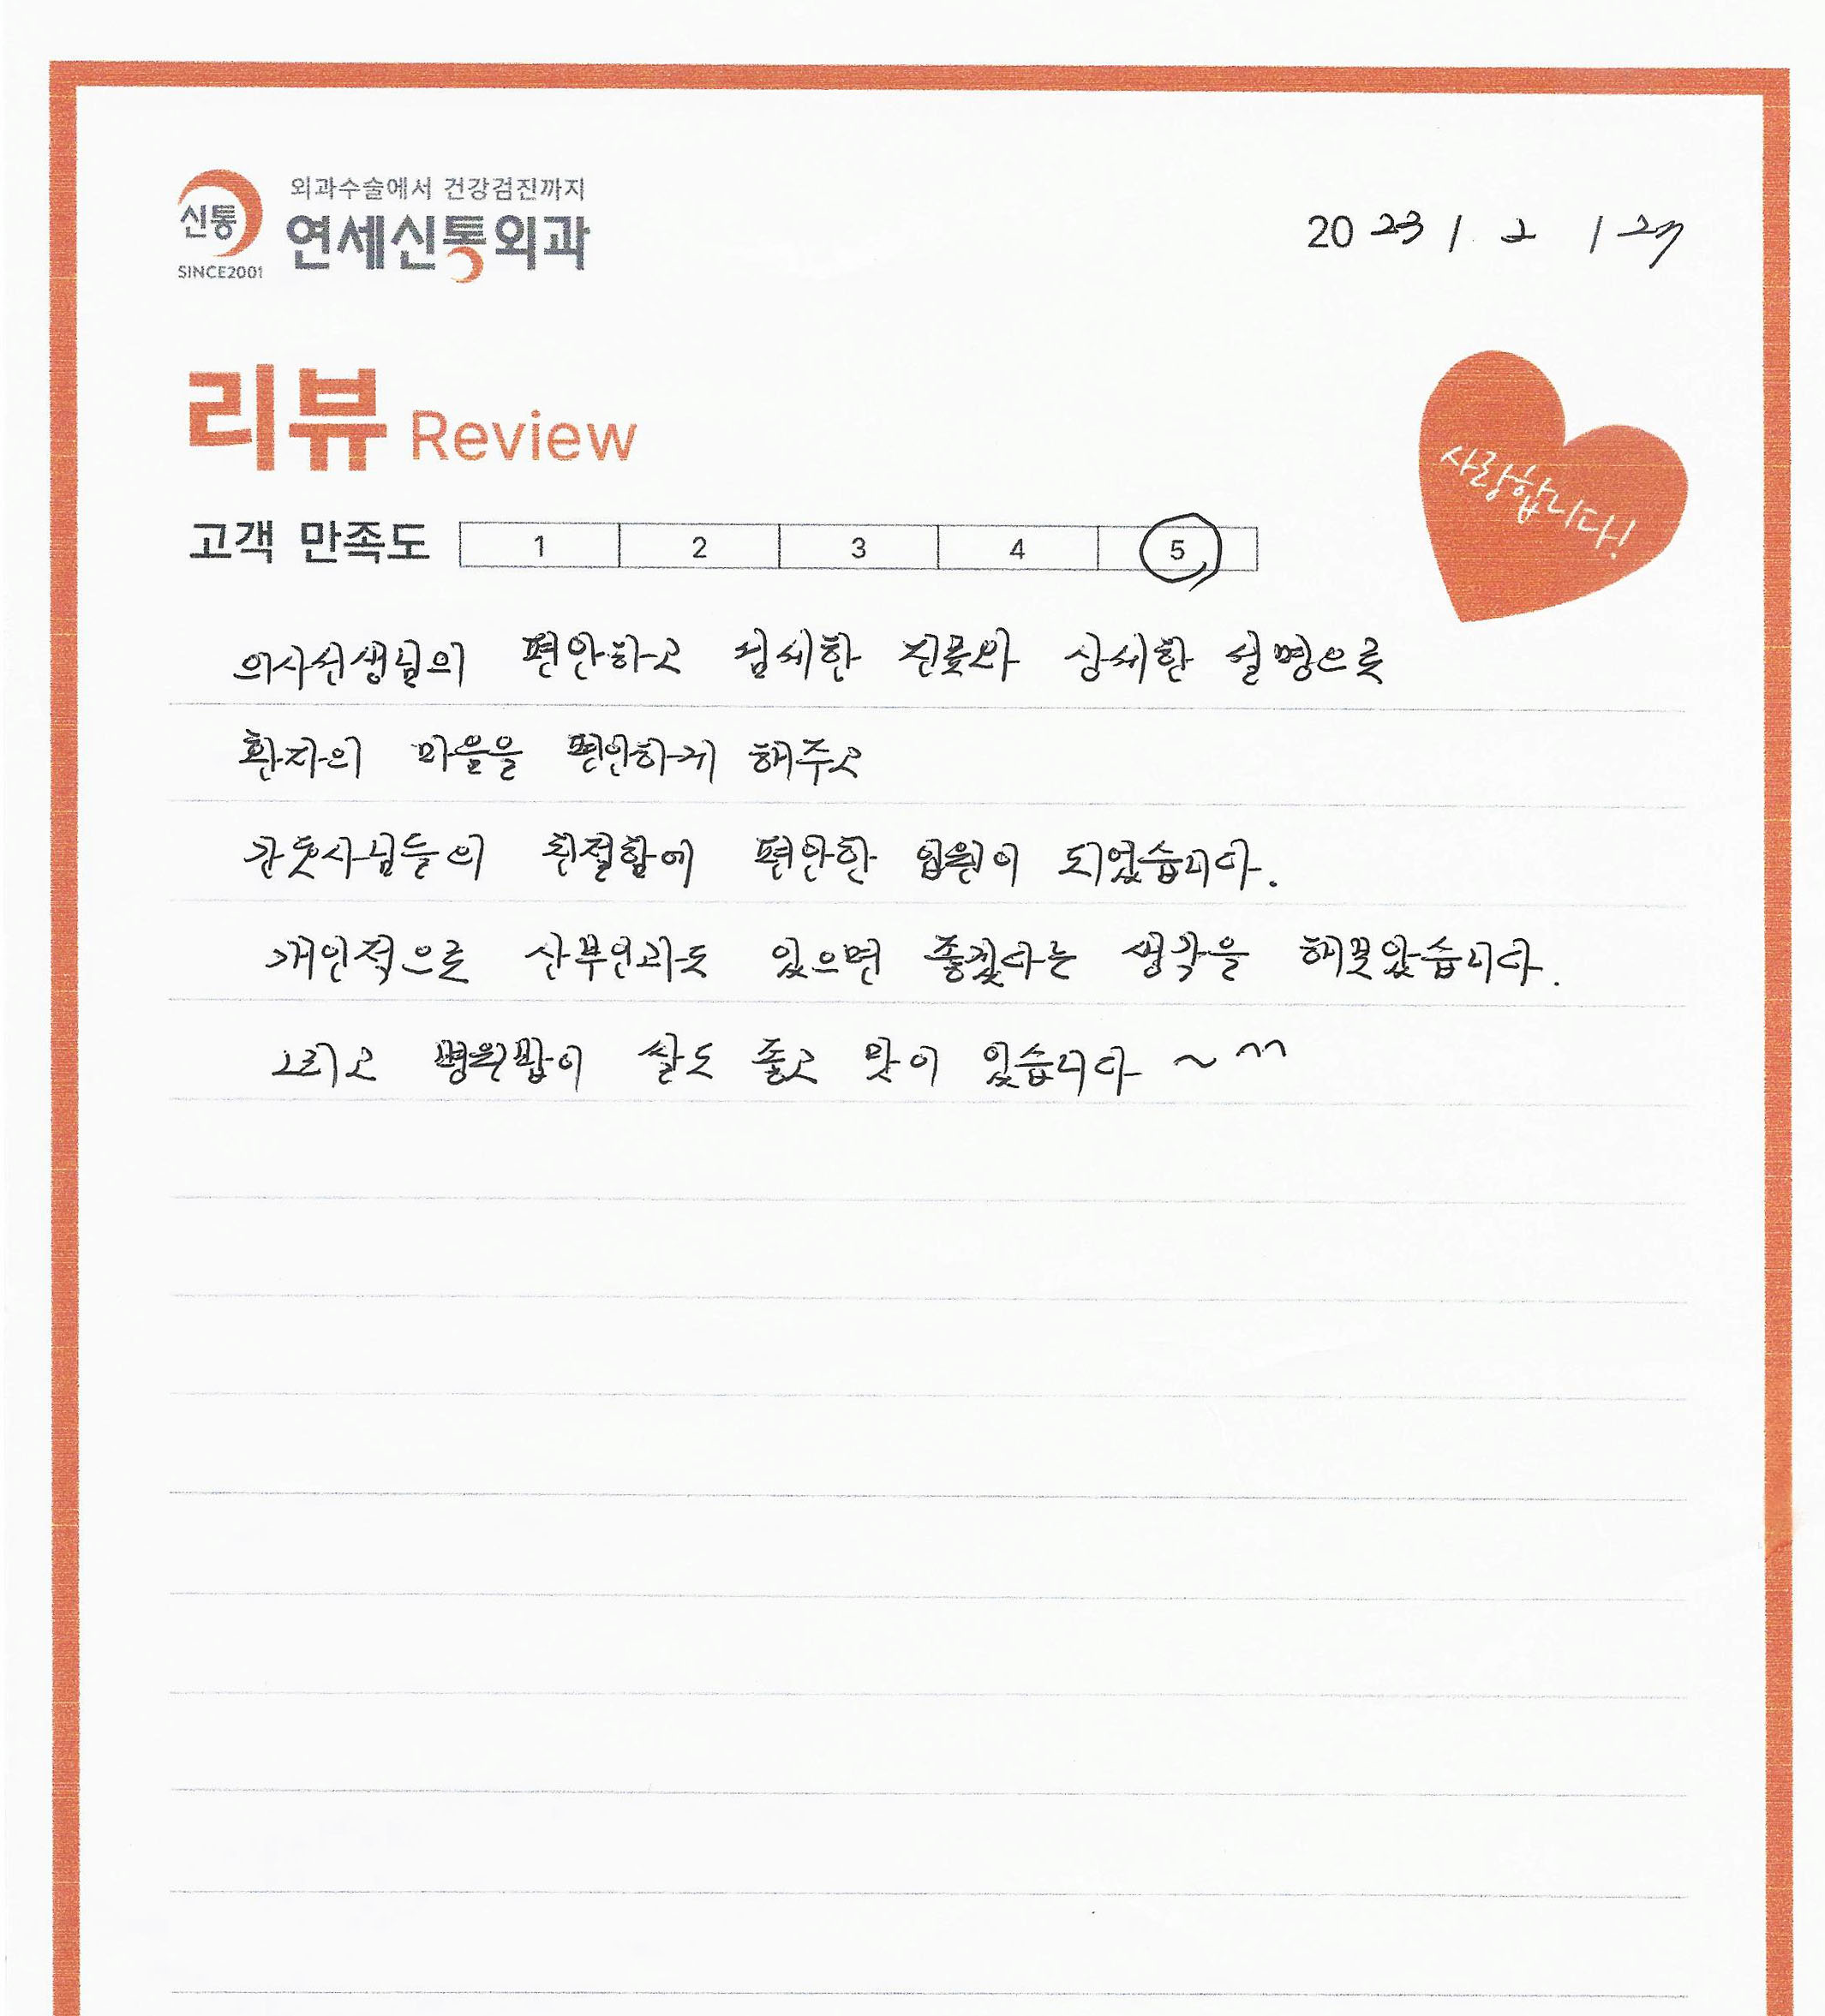 외과수술에서 건강검진까지
신통 연세신통외과
SINCE2001
2023 / 2 / 27
리뷰 Review
사랑합니다!
고객 만족도 1 2 3 4 5
의사선생님의 편안하고 섬세한 진료와 상세한 설명으로
환자의 마음을 편안하게 해주고
간호사님들의 친절함에 편안한 입원이 되었습니다.
개인적으로 산부인과도 있으면 좋겠다는 생각을 해보았습니다.
그리고 병원밥이 쌀도 좋고 맛이 있습니다 ~ ^^